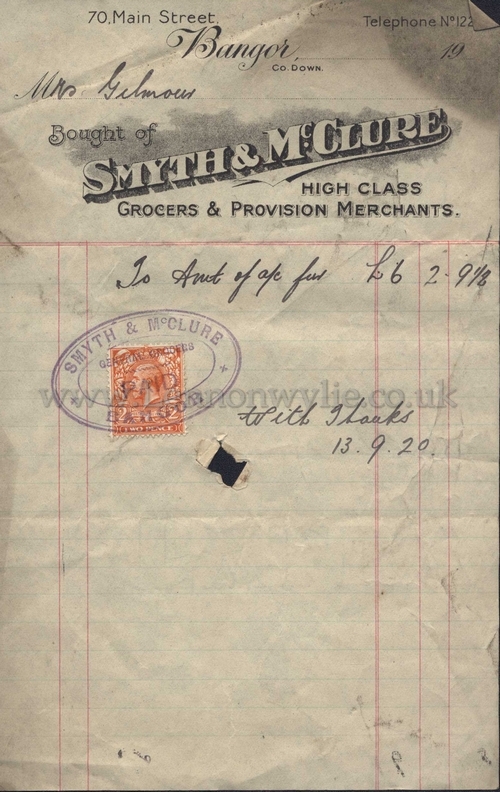 70, Main Street,
Telephone Nº 122
Bangor,
Co. Down.
19
Mrs Gilmour
Bought of
SMYTH & McCLURE
HIGH CLASS
GROCERS & PROVISION MERCHANTS.
To Amt of a/c fur £6 2-9½
SMYTH & McCLURE
GENERAL GROCERS
PAID
BANGOR
2 2
TWO PENCE
With Thanks
13.9.20.